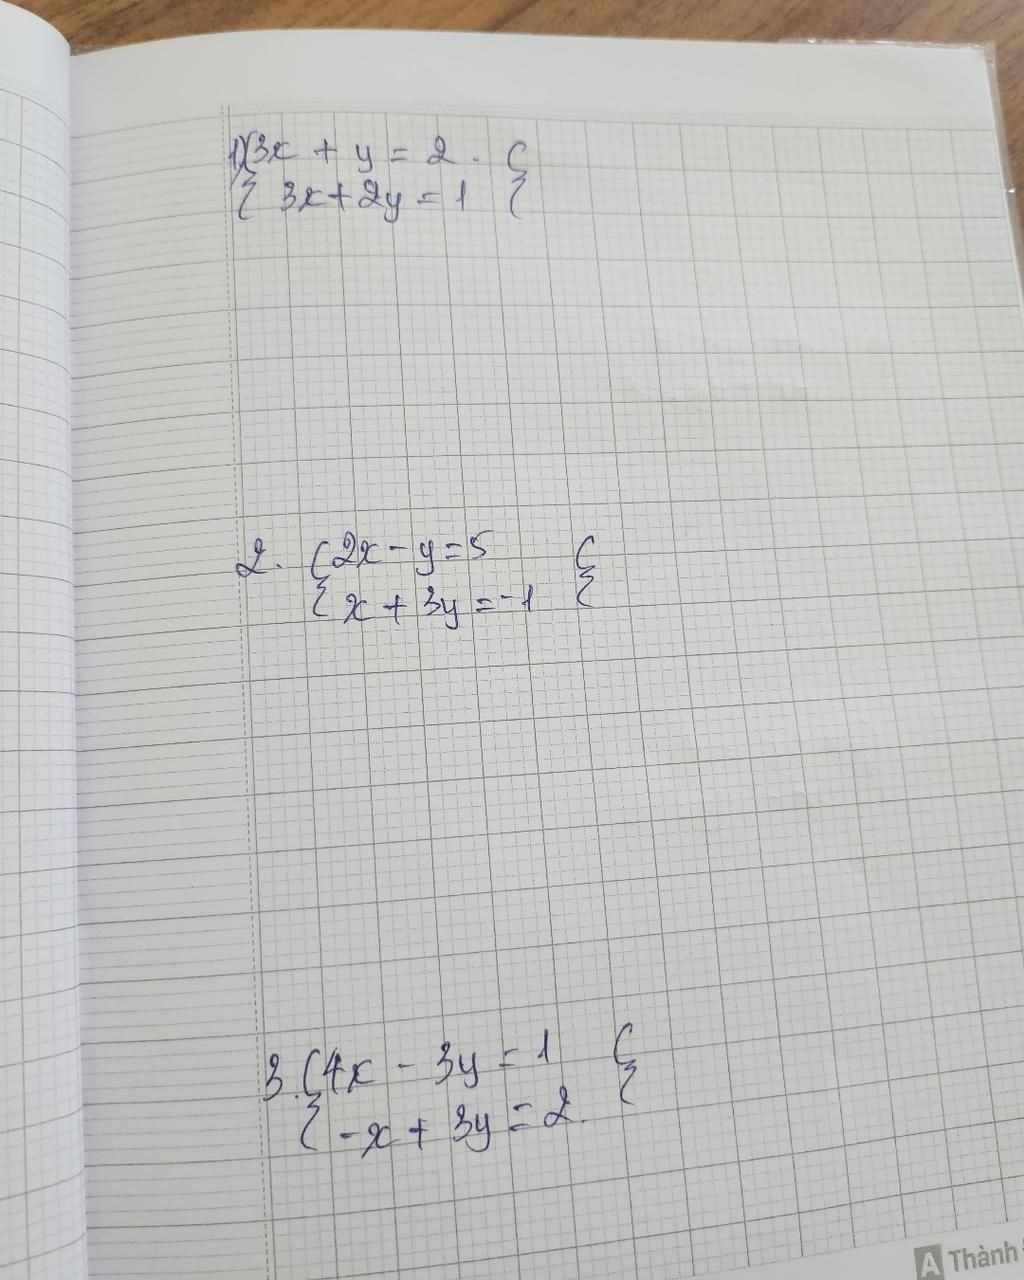 1) { 3x + y = 2 . {
3x + 2y = 1
2. { 2x - y = 5 {
x + 3y = -1
3. { 4x - 3y = 1 {
-x + 3y = 2.
A Thành